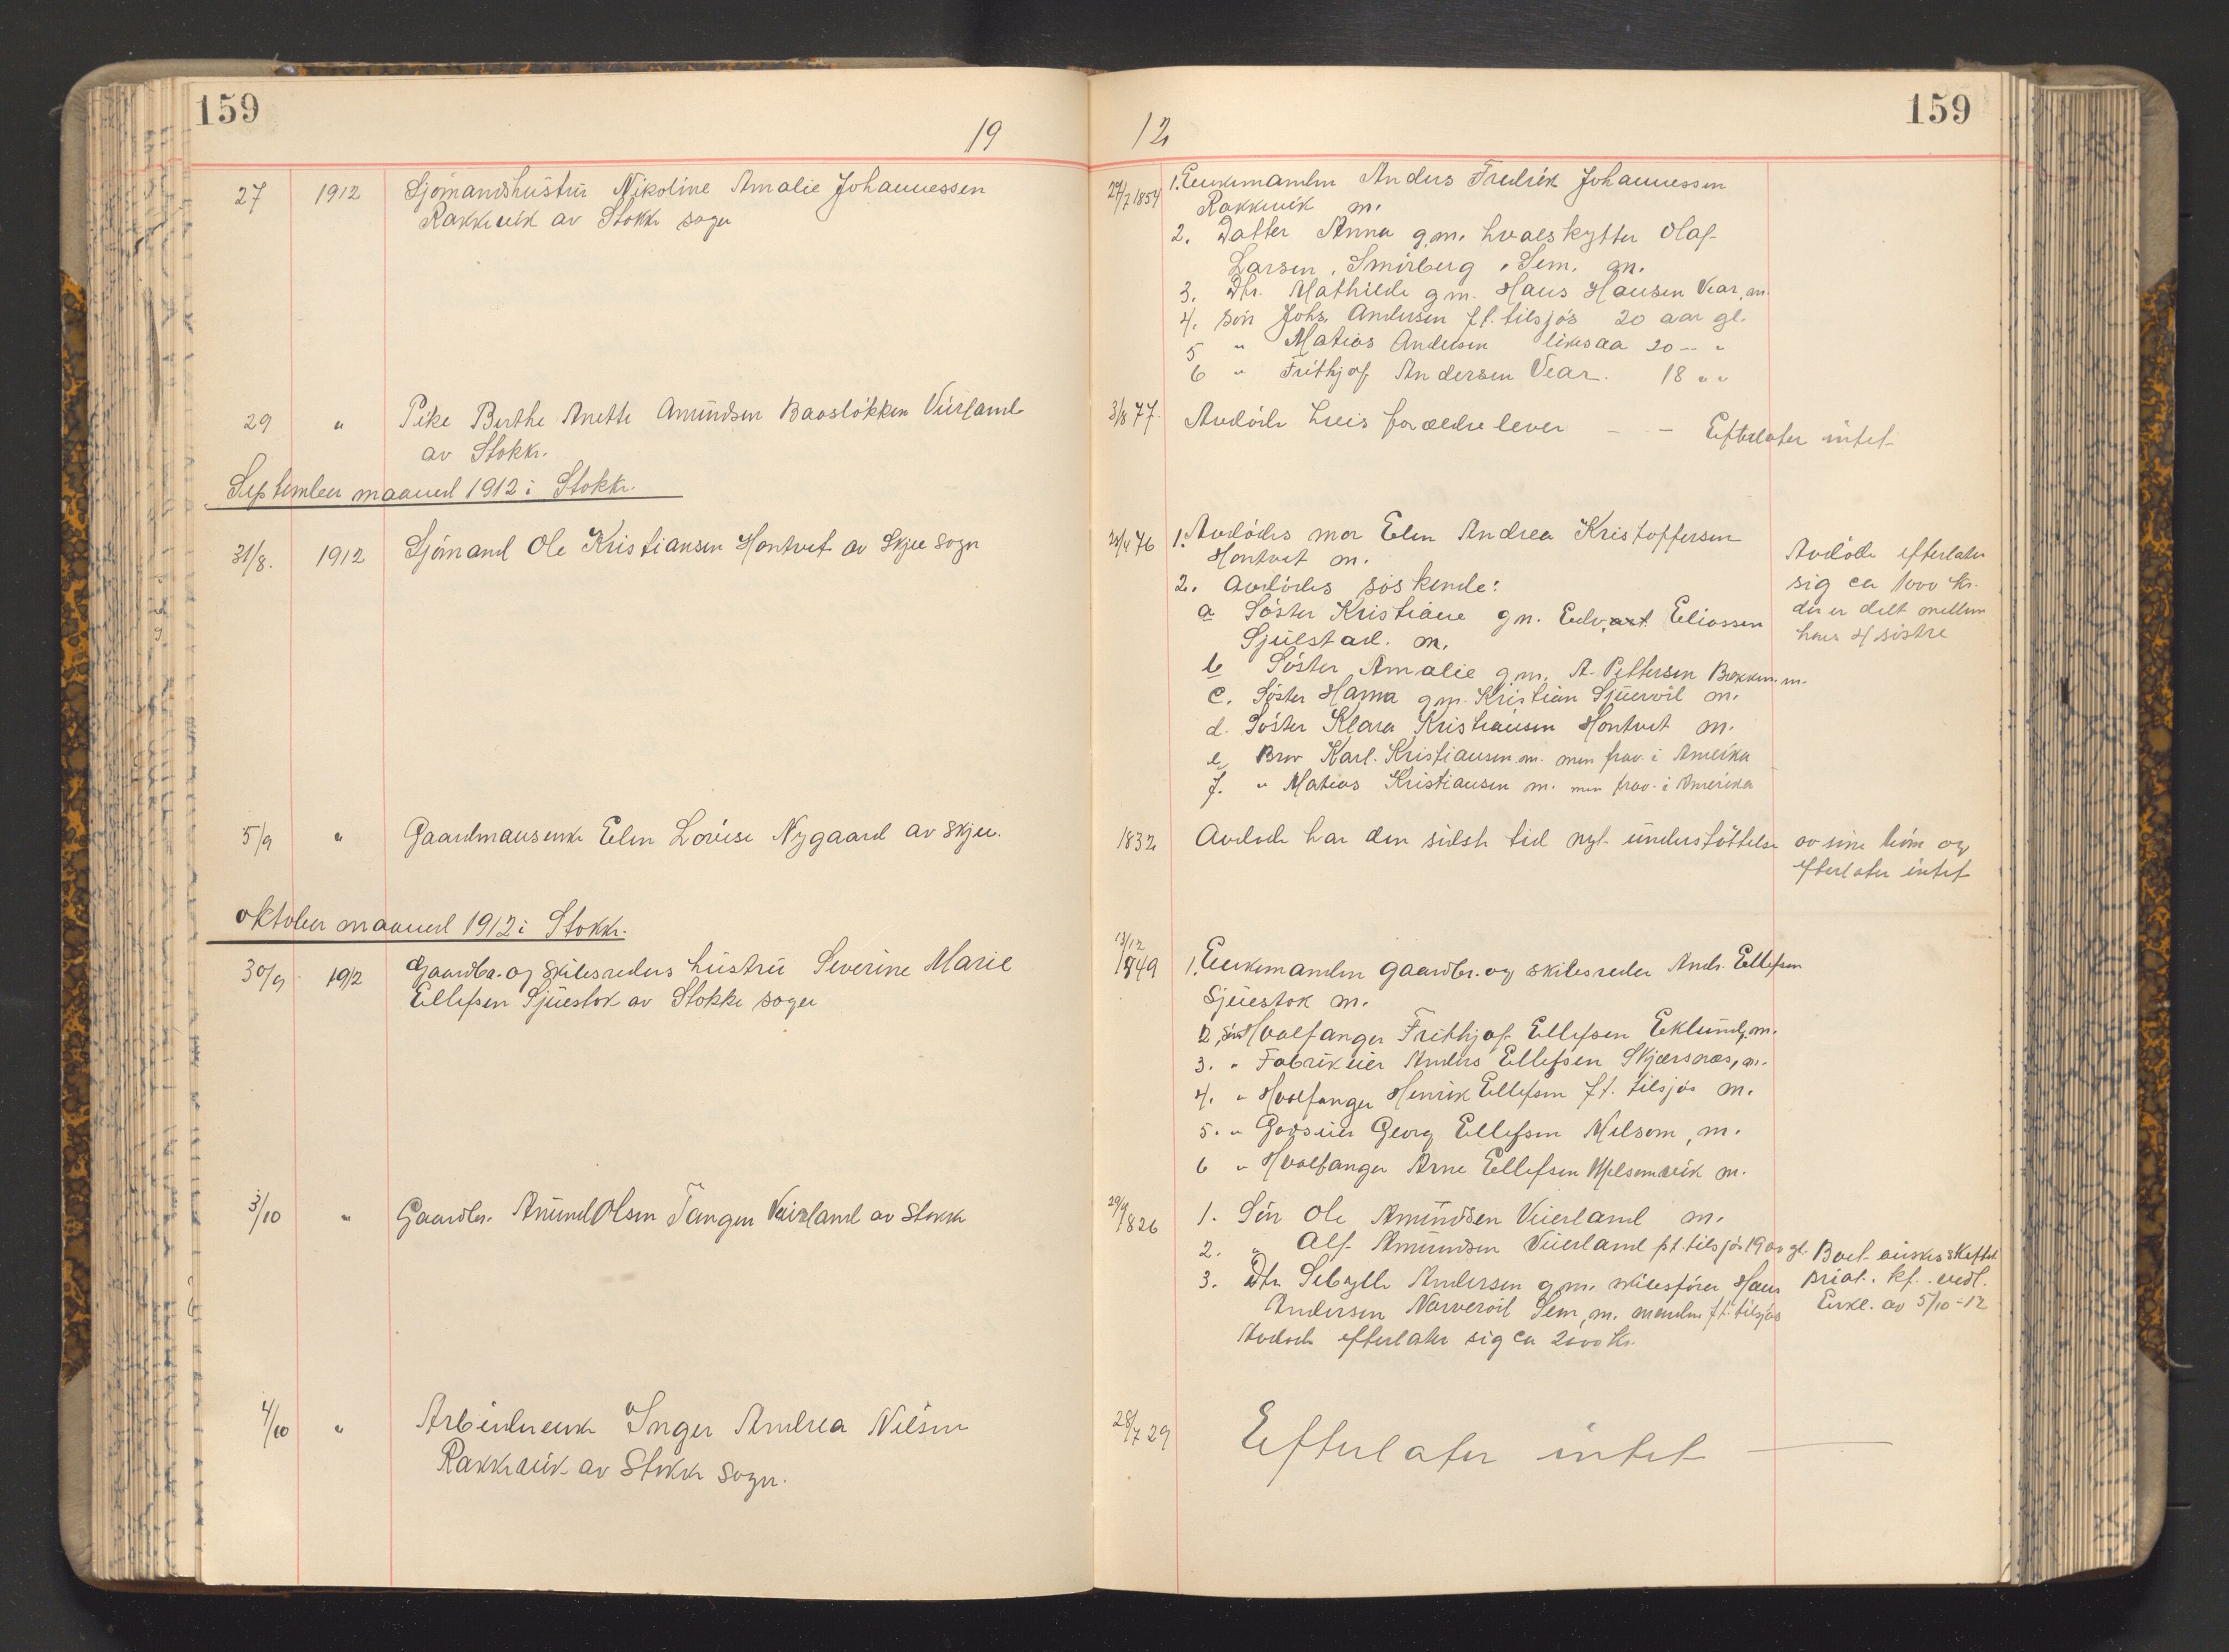 159
19
12
159
27 1912 Sjömandshustru Nikoline Amalie Johannessen
Rakkevik av Stokke sogn
27/7 1854 1. Enkemanden Anders Fredrik Johannessen
Rakkevik m.
2. Datter Anna g.m. hvalskytter Olaf
Larsen, Smörberg, Sem. m.
3. Dtr. Mathilde g.m. Hans Hansen Vear, m.
4. Sön Johs. Andersen f.t. tilsjös 20 aar gl.
5 " Matias Andersen likesaa 20 – "
6 " Frithjof Andersen Vear. 18 " "
29 " Pike Berthe Anette Amundsen Baaslökken Veierland
av Stokke.
3/8 77. Avdöde hvis forældre lever – – Efterlater intet
September maaned 1912 i Stokke.
31/8. 1912 Sjömand Ole Kristiansen Hontvet av Skjee sogn
24/4 76 1. Avdödes mor Elen Andrea Kristoffersen
Hontvet m.
2. Avdödes söskende:
a Söster Kristiane g.m. Edvart Eliassen
Gjulstad. m.
b Söster Amalie g.m. A. Pettersen Bakken m.
c. Söster Hanna g.m. Kristian Sjuevöl m.
d. Söster Klara Kristiansen Hontvet m.
e, Bror Karl Kristiansen m. men frav. i Amerika
f. " Matias Kristiansen m. men frav. i Amerika
Avdöde efterlater
sig ca 1000 kr.
der er delt mellem
hans 4 söstre
5/9 " Gaardmansenke Elen Lovise Nygaard av Skjee.
1832 Avdöde har den sidste tid nyt understöttelse av sine börn og
efterlater intet
Oktober maaned 1912 i Stokke.
30/9 1912 Gaardbr. og skibsreders hustru Severine Marie
Ellefsen Sjuestok av Stokke sogn
13/12 1849 1. Enkemanden gaardbr. og skibsreder Andr. Ellefsen
Sjuestok m.
2, sön Hvalfanger Frithjof Ellefsen Eklund, m.
3. " Fabrikeier Anders Ellefsen Skjærsnæs, m.
4. " Hvalfanger Henrik Ellefsen f.t. tilsjös m.
5. " Godseier Georg Ellefsen Melsom, m.
6 " Hvalfanger Arne Ellefsen Melsomvik m.
3/10 " Gaardbr. Amund Olsen Tangen Veierland av Stokke
29/9 1826 1. Sön Ole Amundsen Veierland m.
2. " Alf Amundsen Veierland f.t. tilsjös 19 aar gl.
3. Dtr. Sibylle Andersen g.m. skibsförer Hans
Andersen Narveröd Sem, m. manden f.t. tilsjös
Avdöde efterlater sig ca 2000 kr.
Boet önskes skiftet
privat. kf. vedl.
Erkl. av 5/10-12
4/10 " Arbeiderenke Inger Andrea Nilsen
Rakkevik av Stokke sogn.
28/7 29 Efterlater intet